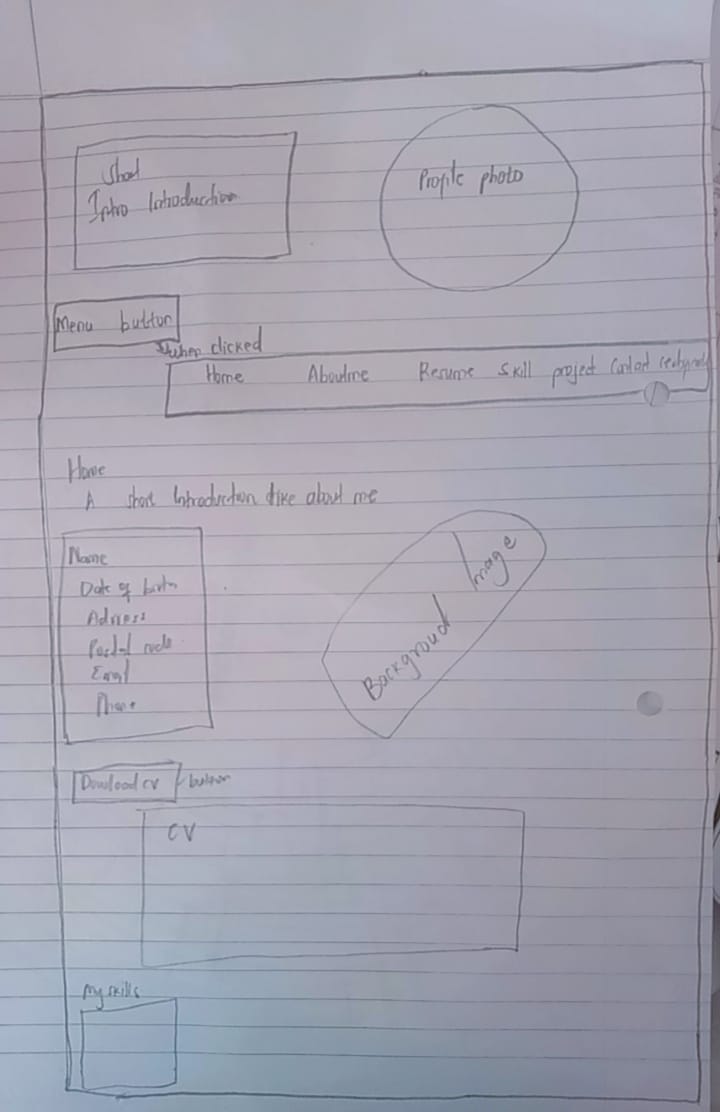 Short
Intro Introduction
Profile photo
Menu button
when clicked
Home Aboutme Resume Skill project Contact
Home
A short Introduction like about me
Name
Date of birth
Address
Postal code
Email
Phone
Background Image
Download CV button
CV
My skills